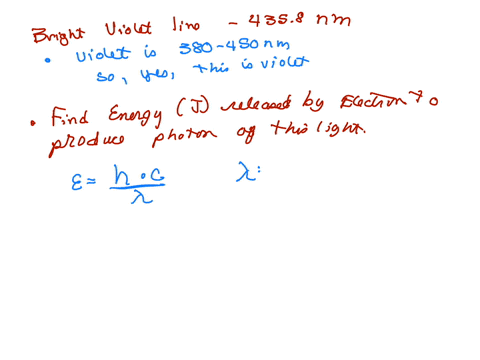 Bright Violet line - 435.8 nm
• Violet is 380-450 nm
so, yes, this is violet
• Find Energy (J) released by Electron to
produce photon of this light.
ε = h • c / λ    λ: